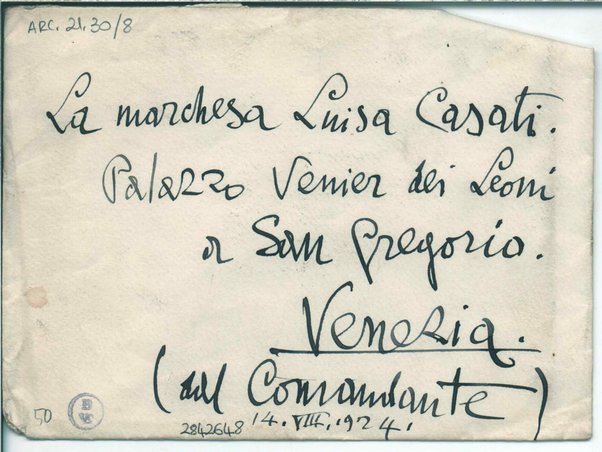 ARC. 21.30/8
La marchesa Luisa Casati.
Palazzo Venier dei Leoni
a San Gregorio.
Venezia.
(dal Comandante)
50
2842648
14. VIII. 1924.